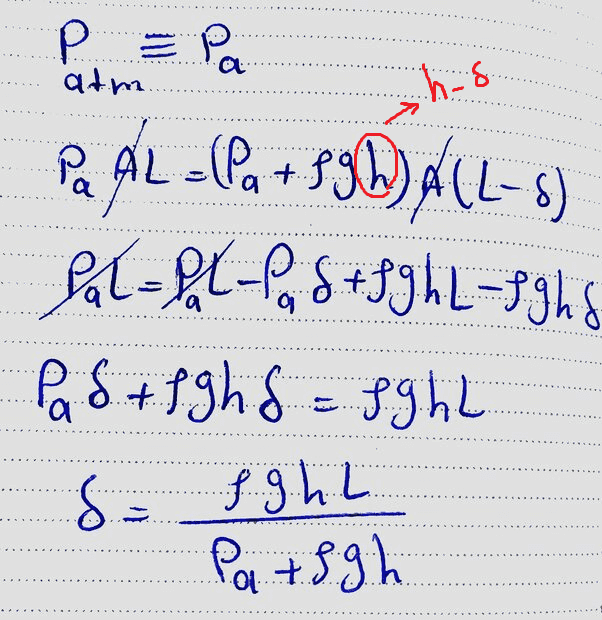 P_atm ≡ P_a
h-δ
P_a A L = (P_a + ρgh) A (L-δ)
P_a L = P_a L - P_a δ + ρghL - ρghδ
P_a δ + ρghδ = ρghL
δ = ρghL / (P_a + ρgh)